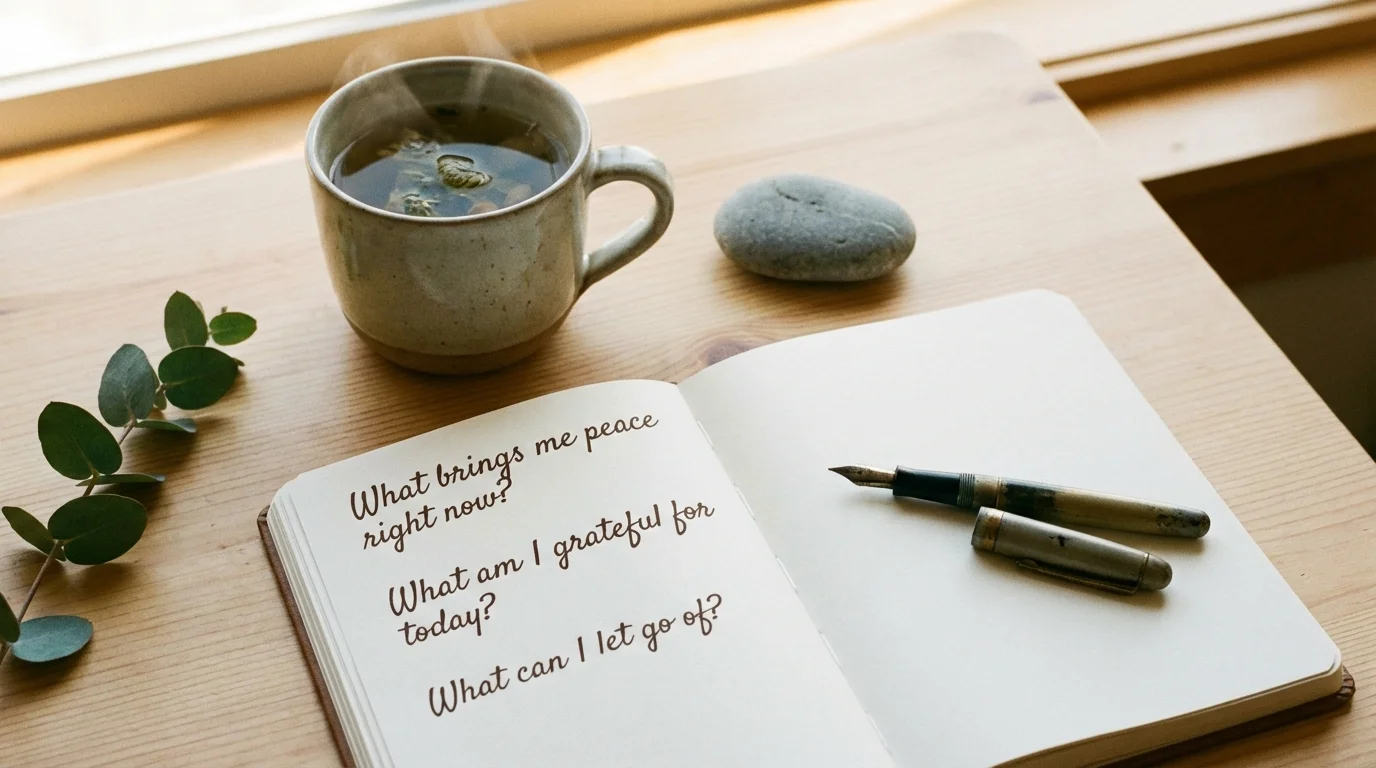 What brings me peace
right now?
What am I grateful for
today?
What can I let go of?